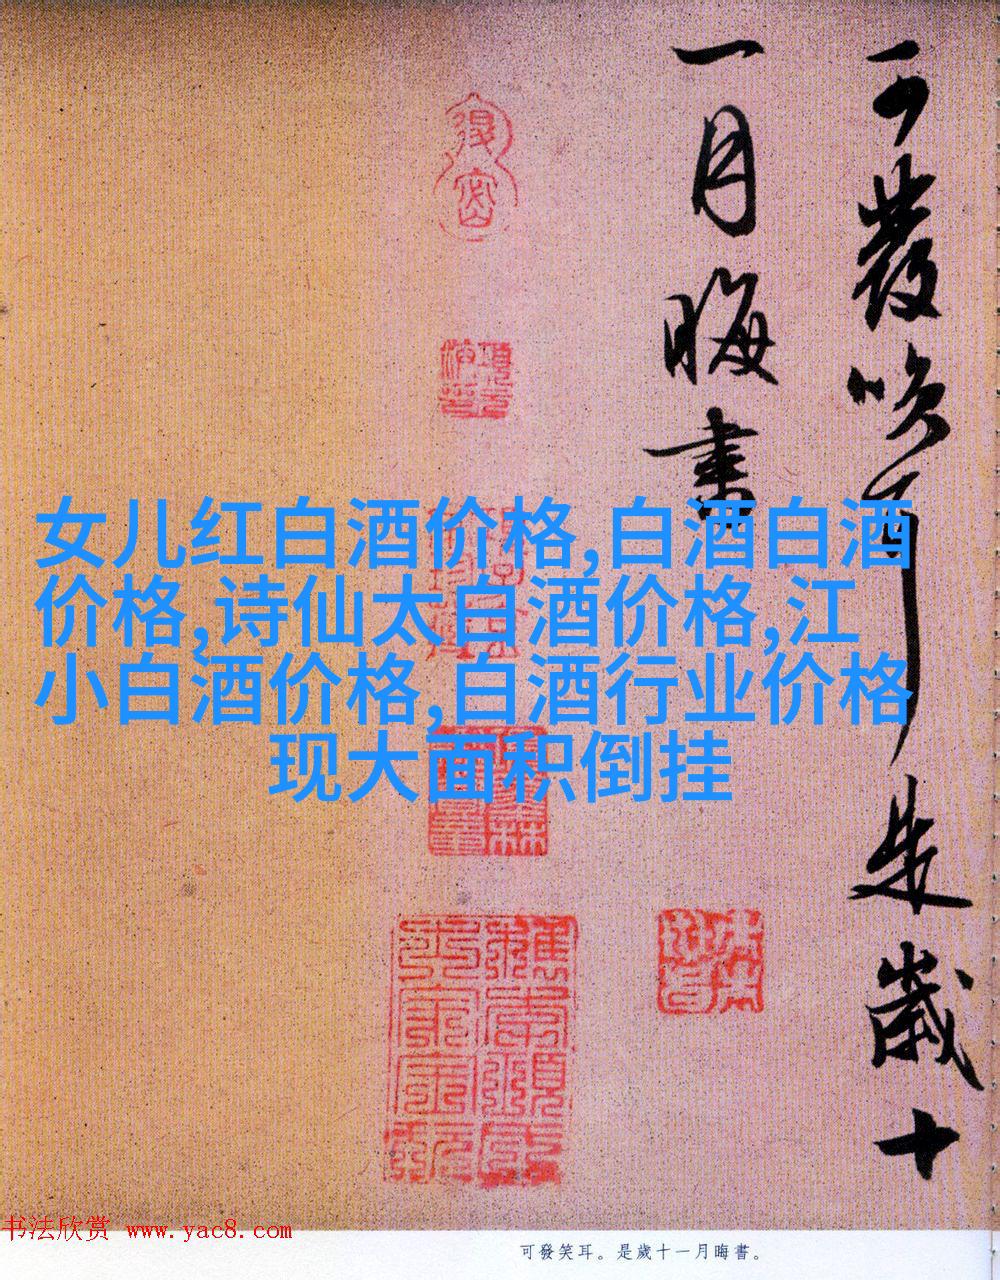 可發笑耳是歲十
一月晦書
女儿红白酒价格,白酒白酒
价格,诗仙太白酒价格,江
小白酒价格,白酒行业价格
现大面积倒挂
书法欣赏 www.yac8.com
可發笑耳。是歲十一月晦書。